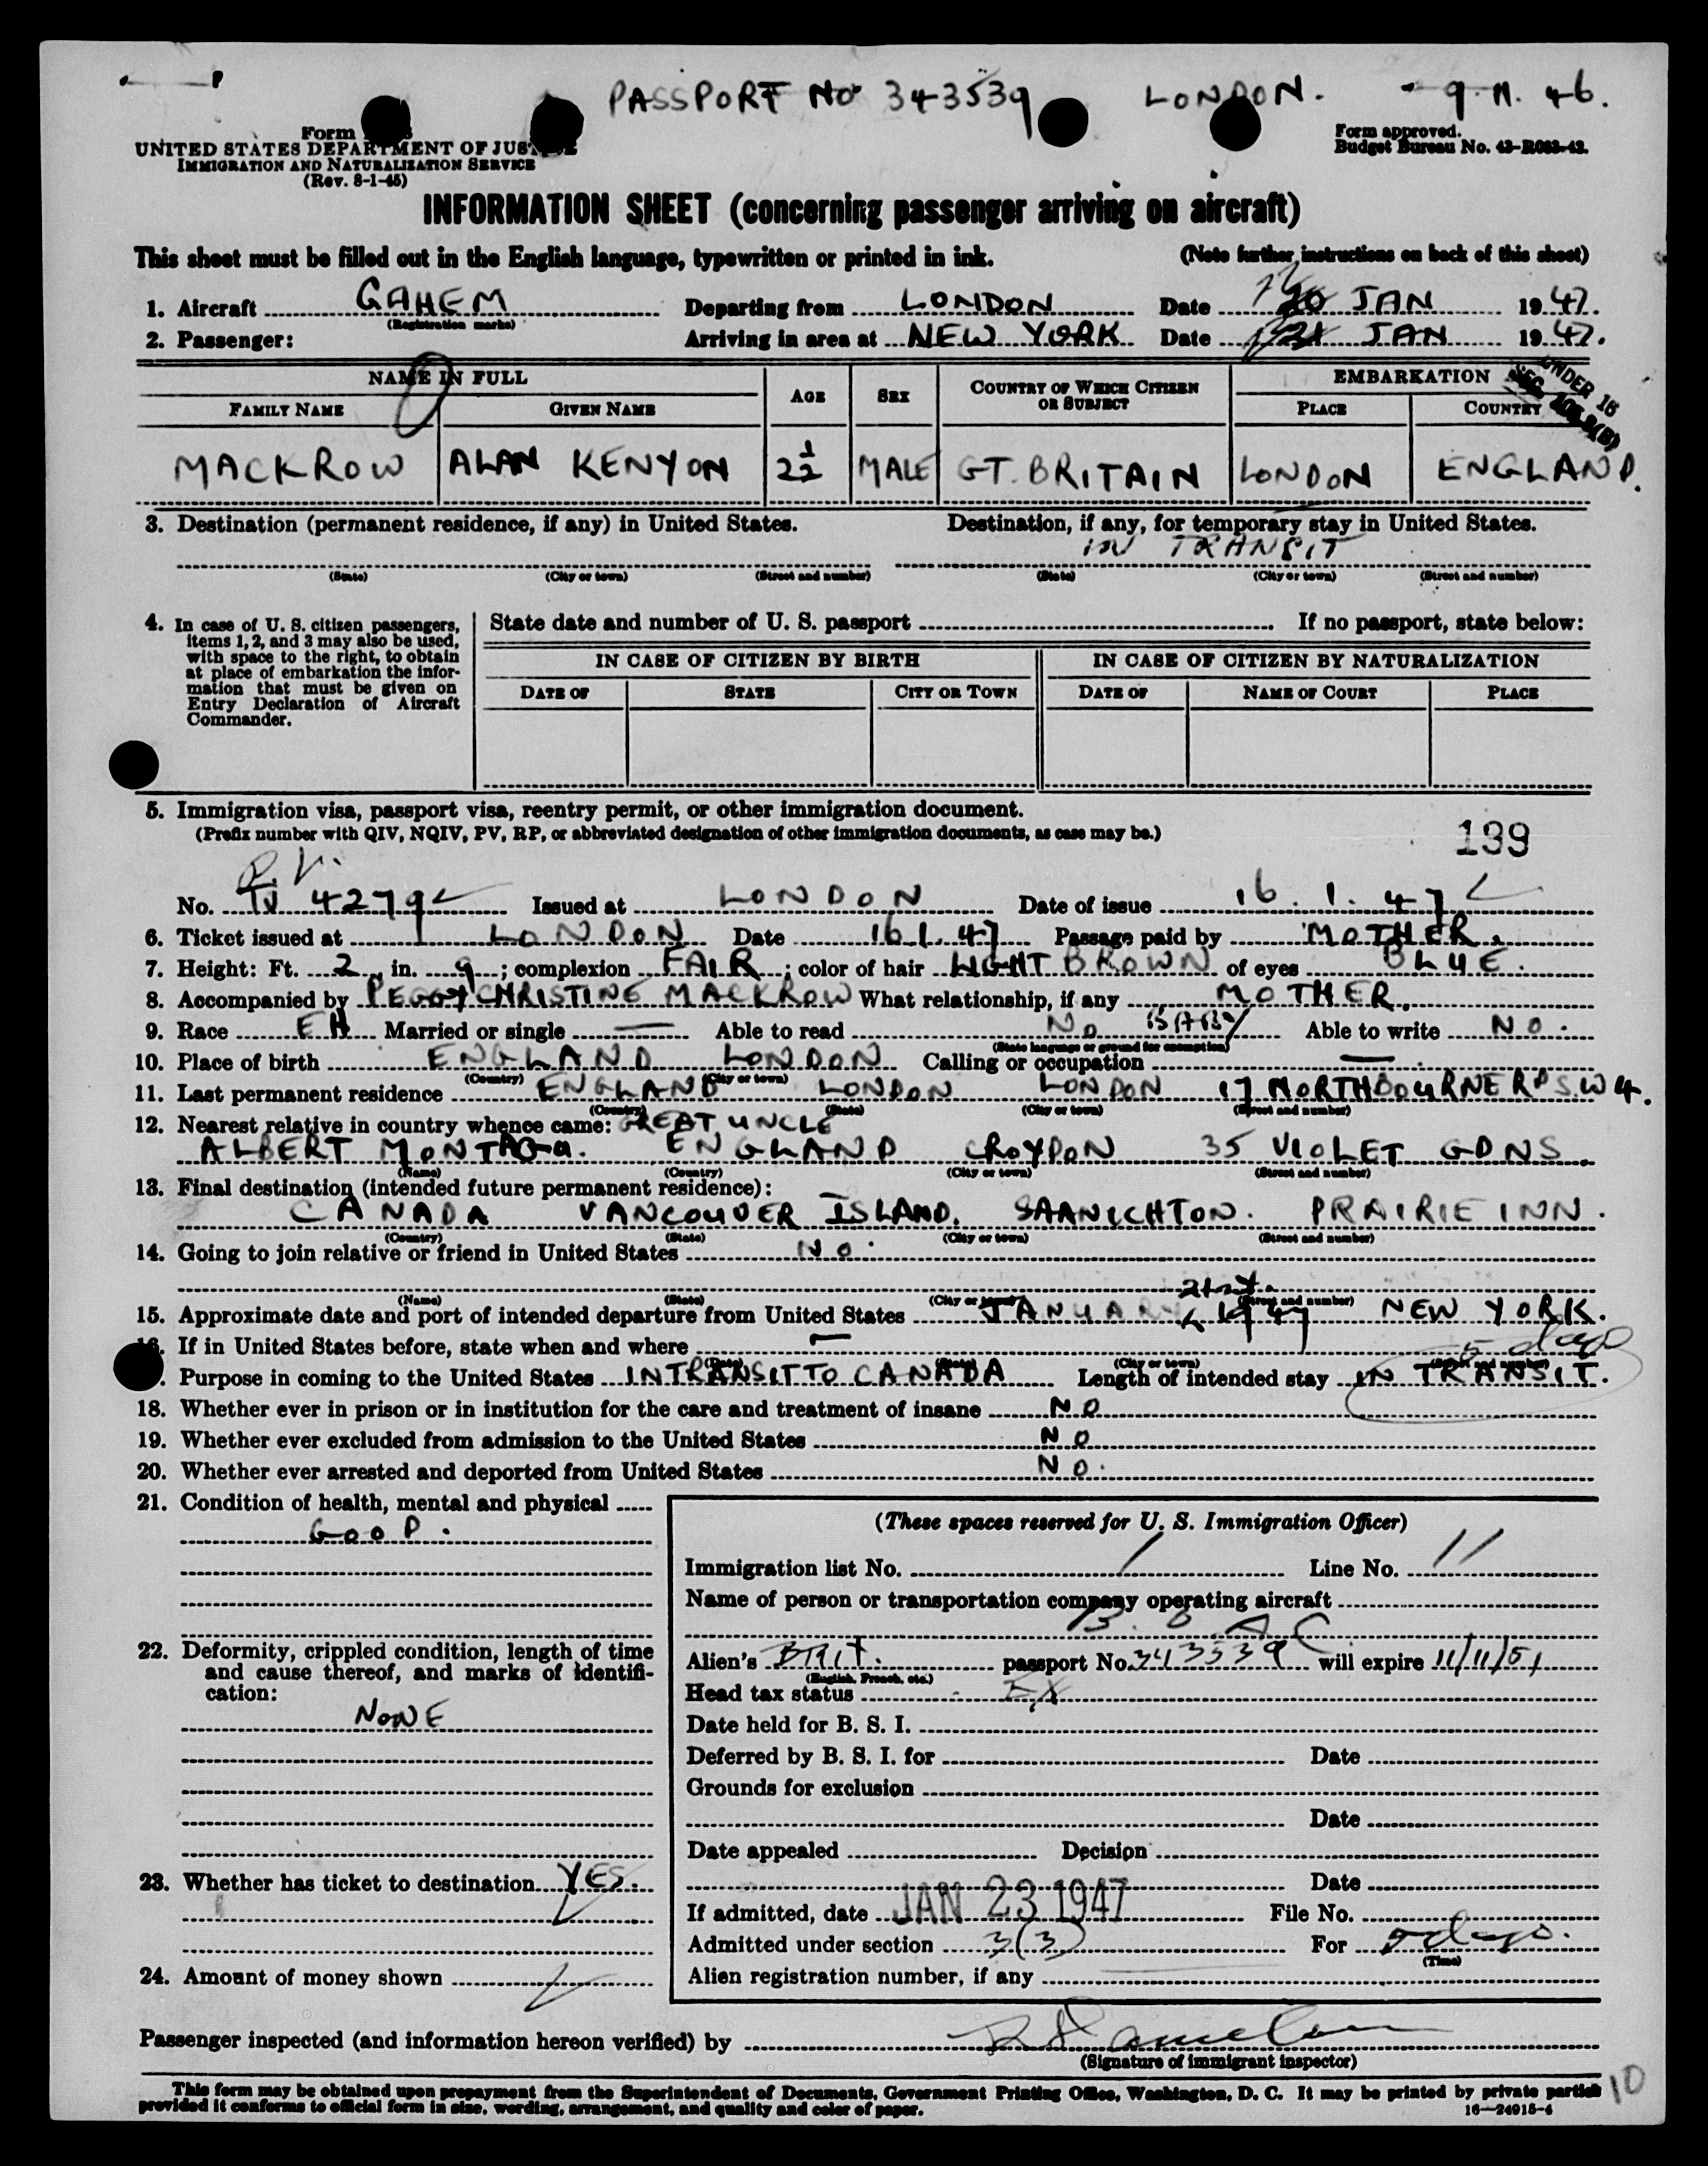 PASSPORT No 343539 LONDON. - 9.11.46.
Form
UNITED STATES DEPARTMENT OF JUSTICE
IMMIGRATION AND NATURALIZATION SERVICE
(Rev. 8-1-45)
Form approved.
Budget Bureau No. 43-R083-42.
INFORMATION SHEET (concerning passenger arriving on aircraft)
This sheet must be filled out in the English language, typewritten or printed in ink. (Note further instructions on back of this sheet)
1. Aircraft GAHEM Departing from LONDON Date 20 JAN 1947.
(Registration marks)
2. Passenger: Arriving in area at NEW YORK Date 21 JAN 1947.
NAME IN FULL AGE SEX COUNTRY OF WHICH CITIZEN OR SUBJECT EMBARKATION
UNDER 16
FAMILY NAME GIVEN NAME PLACE COUNTRY
MACKROW ALAN KENYON 2½ MALE GT. BRITAIN LONDON ENGLAND.
3. Destination (permanent residence, if any) in United States. Destination, if any, for temporary stay in United States.
IN TRANSIT
(State) (City or town) (Street and number) (State) (City or town) (Street and number)
4. In case of U. S. citizen passengers, items 1, 2, and 3 may also be used, with space to the right, to obtain at place of embarkation the information that must be given on Entry Declaration of Aircraft Commander.
State date and number of U. S. passport If no passport, state below:
IN CASE OF CITIZEN BY BIRTH IN CASE OF CITIZEN BY NATURALIZATION
DATE OF STATE CITY OR TOWN DATE OF NAME OF COURT PLACE
5. Immigration visa, passport visa, reentry permit, or other immigration document.
(Prefix number with QIV, NQIV, PV, RP, or abbreviated designation of other immigration documents, as case may be.)
199
P.V.
No. TV 4279 Issued at LONDON Date of issue 16.1.47
6. Ticket issued at LONDON Date 16.1.47 Passage paid by MOTHER.
7. Height: Ft. 2, in. 9; complexion FAIR; color of hair LIGHT BROWN of eyes BLUE.
8. Accompanied by PEGGY CHRISTINE MACKROW What relationship, if any MOTHER.
9. Race EN Married or single — Able to read No BABY Able to write NO.
(State language or ground for exemption)
10. Place of birth ENGLAND LONDON Calling or occupation —.
(Country) (City or town)
11. Last permanent residence ENGLAND LONDON LONDON 17 NORTHBOURNE RD S.W 4.
(Country) (State) (City or town) (Street and number)
12. Nearest relative in country whence came: GREAT UNCLE
ALBERT MONTAGU. ENGLAND CROYDON 35 VIOLET GDNS.
(Name) (Country) (City or town) (Street and number)
13. Final destination (intended future permanent residence):
CANADA VANCOUVER ISLAND. SAANICHTON. PRAIRIE INN.
(Country) (State) (City or town) (Street and number)
14. Going to join relative or friend in United States No.
(Name) (State) (City or town) (Street and number)
21st.
15. Approximate date and port of intended departure from United States JANUARY 1947 NEW YORK.
16. If in United States before, state when and where —
5 days
(Date) (State) (City or town) (Street and number)
. Purpose in coming to the United States INTRANSIT TO CANADA Length of intended stay IN TRANSIT.
18. Whether ever in prison or in institution for the care and treatment of insane NO
19. Whether ever excluded from admission to the United States NO
20. Whether ever arrested and deported from United States NO.
21. Condition of health, mental and physical
GOOD.
22. Deformity, crippled condition, length of time and cause thereof, and marks of identification:
NONE
23. Whether has ticket to destination YES.
24. Amount of money shown
(These spaces reserved for U. S. Immigration Officer)
Immigration list No. 1 Line No. 11
Name of person or transportation company operating aircraft
B.O.A.C
Alien's BRIT. passport No. 343539 will expire 11/11/51
(English, French, etc.)
Head tax status EX
Date held for B. S. I.
Deferred by B. S. I. for Date
Grounds for exclusion
Date
Date appealed Decision
Date
If admitted, date JAN 23 1947 File No.
Admitted under section 3(3) For 5 days.
(Time)
Alien registration number, if any
Passenger inspected (and information hereon verified) by
(Signature of immigrant inspector)
This form may be obtained upon prepayment from the Superintendent of Documents, Government Printing Office, Washington, D. C. It may be printed by private parties
provided it conforms to official form in size, wording, arrangement, and quality and color of paper.
16—24915-4
10